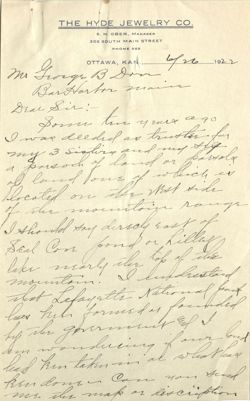 THE HYDE JEWELRY CO.
E. H. OBER, MANAGER
302 SOUTH MAIN STREET
PHONE
OTTAWA, KAN., 6/26 1922
Mr George B Dorr
Bar Harbor Maine
Dear Sir:
Some ten years ago
I was deeded as trustee for
my 3 sisters and my self
a parcel of land or parcels
of land one of which is
located on the West side
of the mountain range
I should say directly east of
Seal Cove pond or
lake nearly the top of the
mountain. I understand
that Lafayette National park
has been formed or founded
by the government & I
am wondering if our land
had been taken in or what has
been done. Can you send
me the map or description